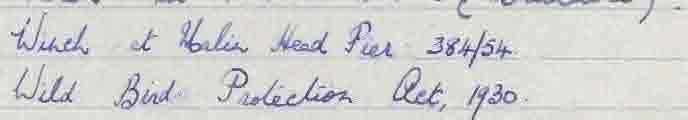 Winch at Malin Head Pier 384/54.
Wild Bird Protection Act, 1930.